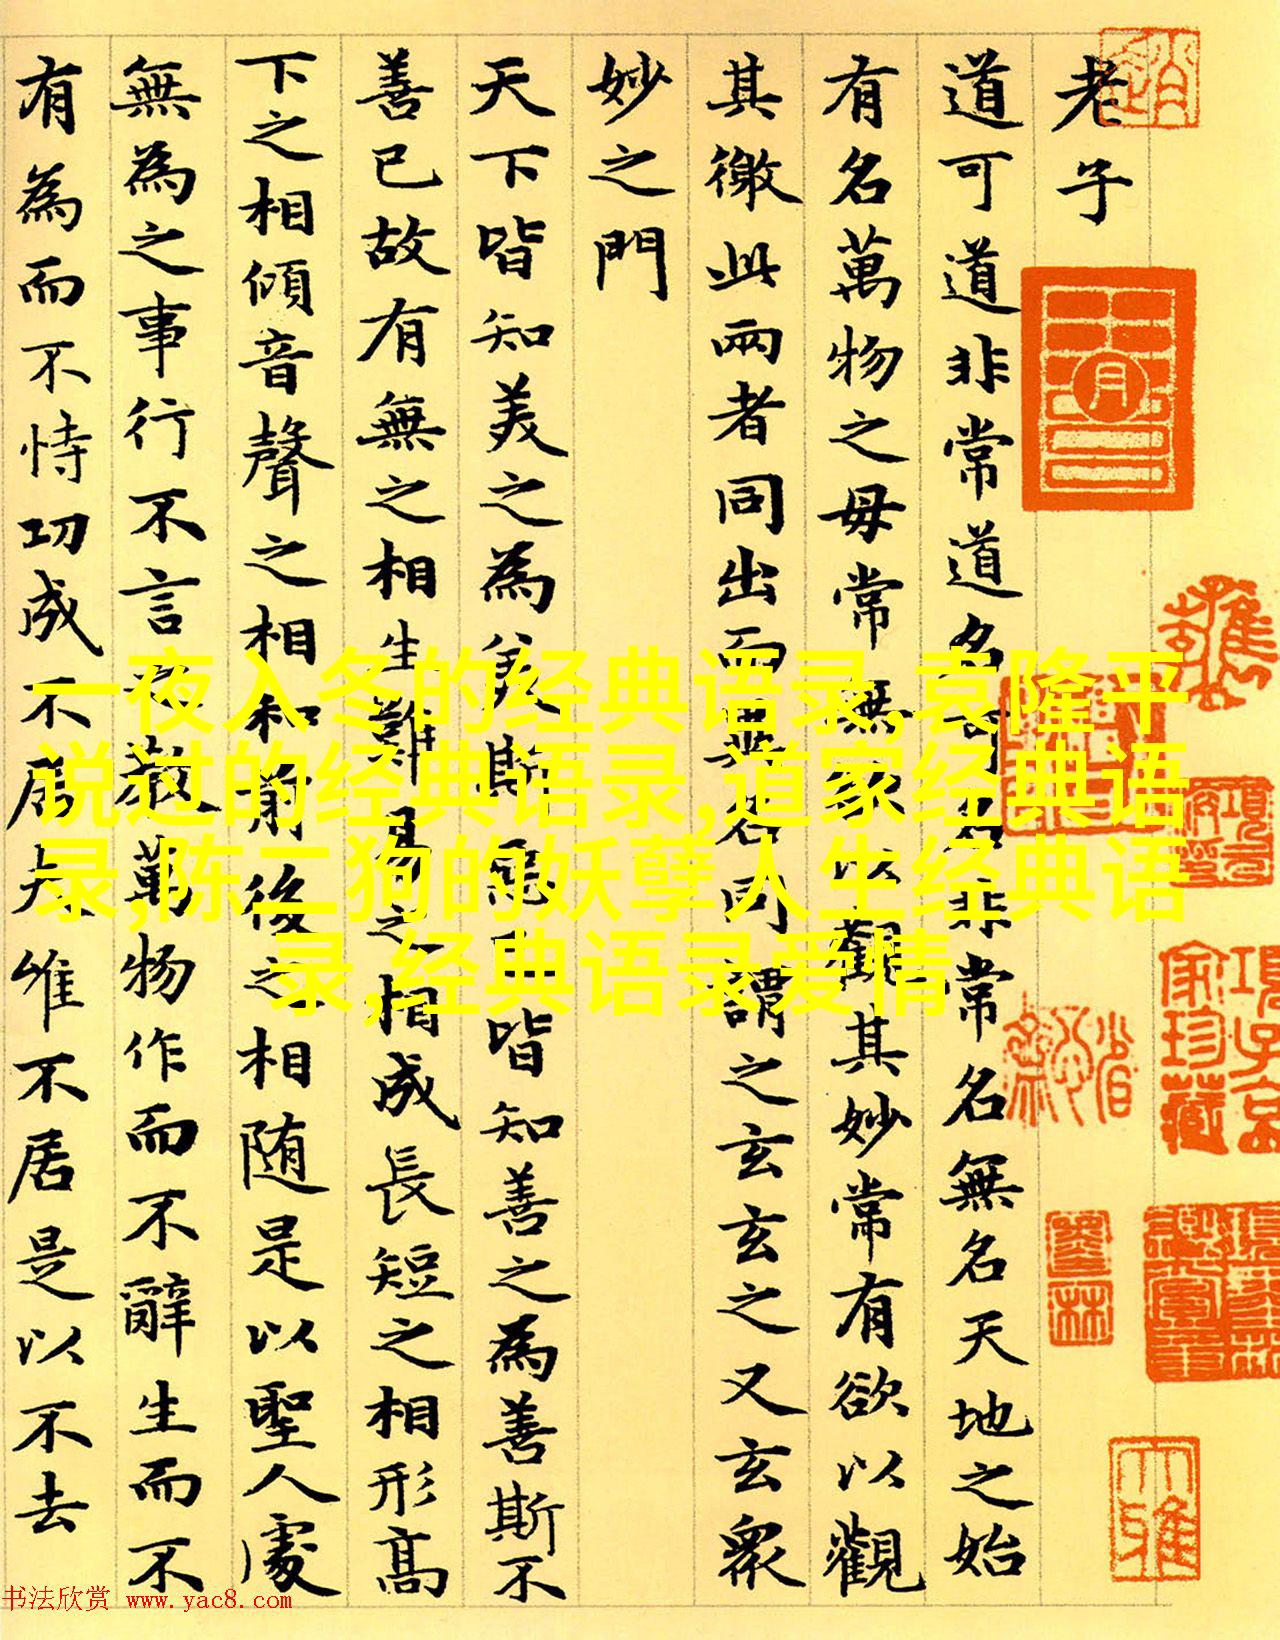 老子
道可道非常道名可名非常名無名天地之始
有名萬物之母常無欲以觀其妙常有欲以觀
其徼此兩者同出而異名同謂之玄玄之又玄衆
妙之門
天下皆知美之為美斯惡已皆知善之為善斯不
善已故有無之相生難易之相成長短之相形高
下之相傾音聲之相和前後之相随是以聖人處
無為之事行不言之教萬物作而不辭生而不
有為而不恃功成不居夫惟不居是以不去
一夜入冬的经典语录,袁隆平
说过的经典语录,道家经典语
录,陈二狗的妖孽人生经典语
录,经典语录爱情
項子京家珍藏
大雅
书法欣赏 www.yac8.com